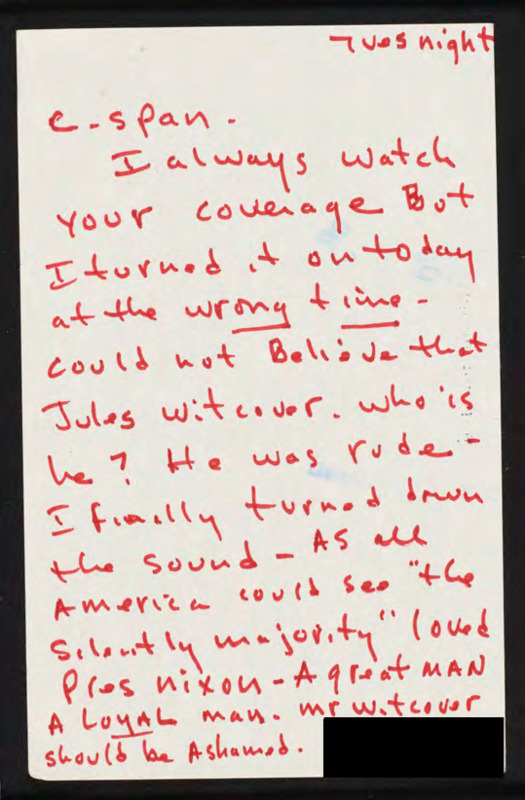 Tues night
C-Span -
I always watch
your coverage But
I turned it on today
at the wrong time -
could not Believe that
Jules Witcover. who is
he? He was rude -
I finally turned down
the sound - AS all
America could see "the
Silently majority" loved
Pres nixon - A great MAN
A LOYAL man. mr witcover
should be Ashamed.